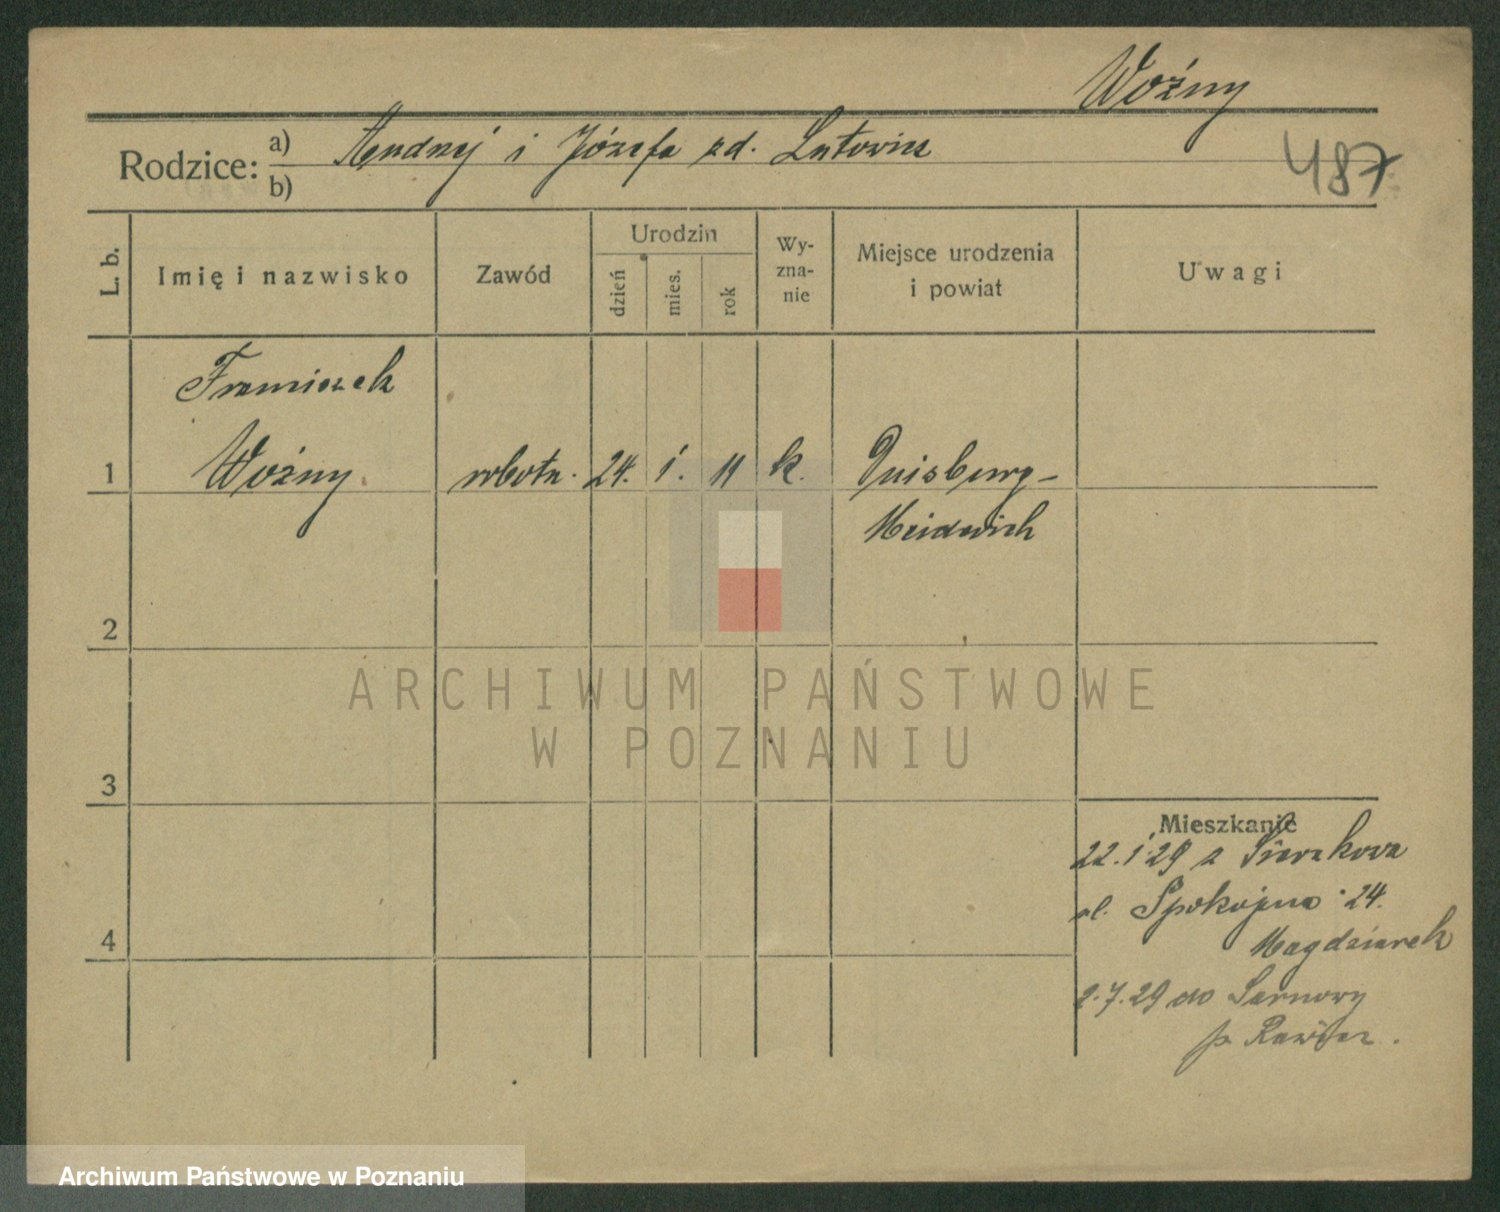 Woźny
Rodzice: a) Andrzej i Józefa zd. Lutowicz
b)
487
L. b.
Imię i nazwisko
Zawód
Urodzin
dzień
mies.
rok
Wy-
zna-
nie
Miejsce urodzenia
i powiat
Uwagi
Franciszek
1 Woźny robotn. 24. i. 11 k. Duisburg-
Meiderich
2
3
4
ARCHIWUM PAŃSTWOWE
W POZNANIU
Mieszkanie
22.i 29 z Sierakowa
ul. Spokojna 24.
Magdziarek
2.7.29 do Sarnowy
p. Rawicz.
Archiwum Państwowe w Poznaniu